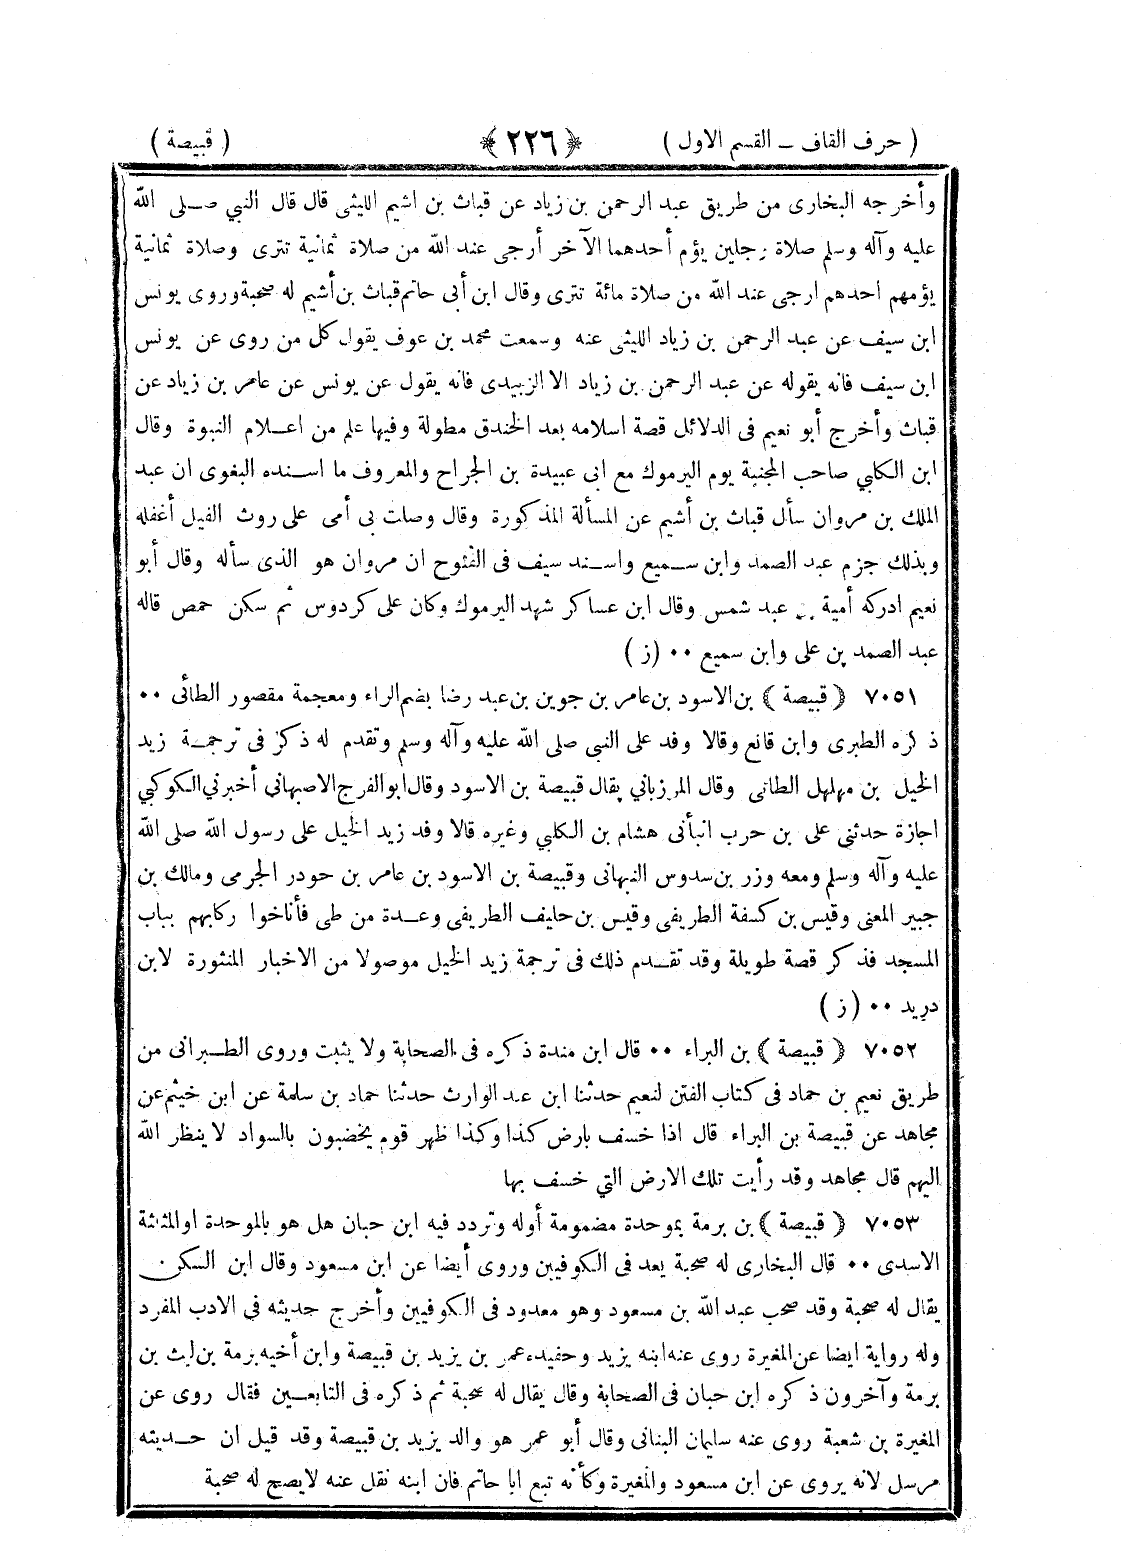 ( حرف القاف ــ القسم الاول ) ﴿ ٢٢٦ ﴾ ( قبيصة )
وأخرجه البخارى من طريق عبد الرحمن بن زياد عن قباث بن اشيم الليثى قال قال النبي صلى الله
عليه وآله وسلم صلاة رجلين يؤم أحدهما الآخر أرجى عند الله من صلاة ثمانية تترى وصلاة ثمانية
يؤمهم احدهم ارجى عند الله من صلاة مائة تترى وقال ابن أبى حاتم قباث بن أشيم له صحبة وروى يونس
ابن سيف عن عبد الرحمن بن زياد الليثى عنه وسمعت محمد بن عوف يقول كل من روى عن يونس
ابن سيف فانه يقوله عن عبد الرحمن بن زياد الا الزبيدى فانه يقول عن يونس عن عامر بن زياد عن
قباث وأخرج أبو نعيم فى الدلائل قصة اسلامه بعد الخندق مطولة وفيها علم من اعلام النبوة وقال
ابن الكلبي صاحب المجنبة يوم اليرموك مع ابى عبيدة بن الجراح والمعروف ما اسنده البغوى ان عبد
الملك بن مروان سأل قباث بن أشيم عن المسألة المذكورة وقال وصلت بى أمى على روث الفيل أغفله
وبذلك جزم عبد الصمد وابن سميع واسند سيف فى الفتوح ان مروان هو الذى سأله وقال أبو
نعيم ادركه أمية بن عبد شمس وقال ابن عساكر شهد اليرموك وكان على كردوس ثم سكن حمص قاله
عبد الصمد بن على وابن سميع ٠٠ ( ز )
٧٠٥١ ﴿ قبيصة ﴾ بن الاسود بن عامر بن جوين بن عبد رضا بضم الراء ومعجمة مقصور الطائى ٠٠
ذكره الطبرى وابن قانع وقالا وفد على النبى صلى الله عليه وآله وسلم وتقدم له ذكر فى ترجمة زيد
الخيل بن مهلهل الطائى وقال المرزباني يقال قبيصة بن الاسود وقال ابو الفرج الاصبهاني أخبرني الكوكبي
اجازة حدثنى على بن حرب انبأنى هشام بن الكلبي وغيره قالا وفد زيد الخيل على رسول الله صلى الله
عليه وآله وسلم ومعه وزر بن سدوس النبهانى وقبيصة بن الاسود بن عامر بن حودر الجرمى ومالك بن
جبير المعنى وقيس بن كسفة الطريفى وقيس بن حليف الطريفى وعدة من طى فأناخوا ركابهم بباب
المسجد فذكر قصة طويلة وقد تقدم ذلك فى ترجمة زيد الخيل موصولا من الاخبار المنثورة لابن
دريد ٠٠ ( ز )
٧٠٥٢ ﴿ قبيصة ﴾ بن البراء ٠٠ قال ابن مندة ذكره فى الصحابة ولا يثبت وروى الطبرانى من
طريق نعيم بن حماد فى كتاب الفتن لنعيم حدثنا ابن عبد الوارث حدثنا حماد بن سلمة عن ابن خيثم عن
مجاهد عن قبيصة بن البراء قال اذا خسف بارض كذا وكذا ظهر قوم يخضبون بالسواد لا ينظر الله
اليهم قال مجاهد وقد رأيت تلك الارض التي خسف بها
٧٠٥٣ ﴿ قبيصة ﴾ بن برمة بموحدة مضمومة أوله وتردد فيه ابن حبان هل هو بالموحدة او المثلثة
الاسدى ٠٠ قال البخارى له صحبة يعد فى الكوفيين وروى أيضا عن ابن مسعود وقال ابن السكن
يقال له صحبة وقد صحب عبد الله بن مسعود وهو معدود فى الكوفيين وأخرج حديثه فى الادب المفرد
وله رواية ايضا عن المغيرة روى عنه ابنه يزيد وحفيده عمر بن يزيد بن قبيصة وابن أخيه برمة بن ليث بن
برمة وآخرون ذكره ابن حبان فى الصحابة وقال يقال له صحبة ثم ذكره فى التابعين فقال روى عن
المغيرة بن شعبة روى عنه سليمان البنانى وقال أبو عمر هو والد يزيد بن قبيصة وقد قيل ان حديثه
مرسل لانه يروى عن ابن مسعود والمغيرة وكأنه تبع ابا حاتم فان ابنه نقل عنه لا يصح له صحبة